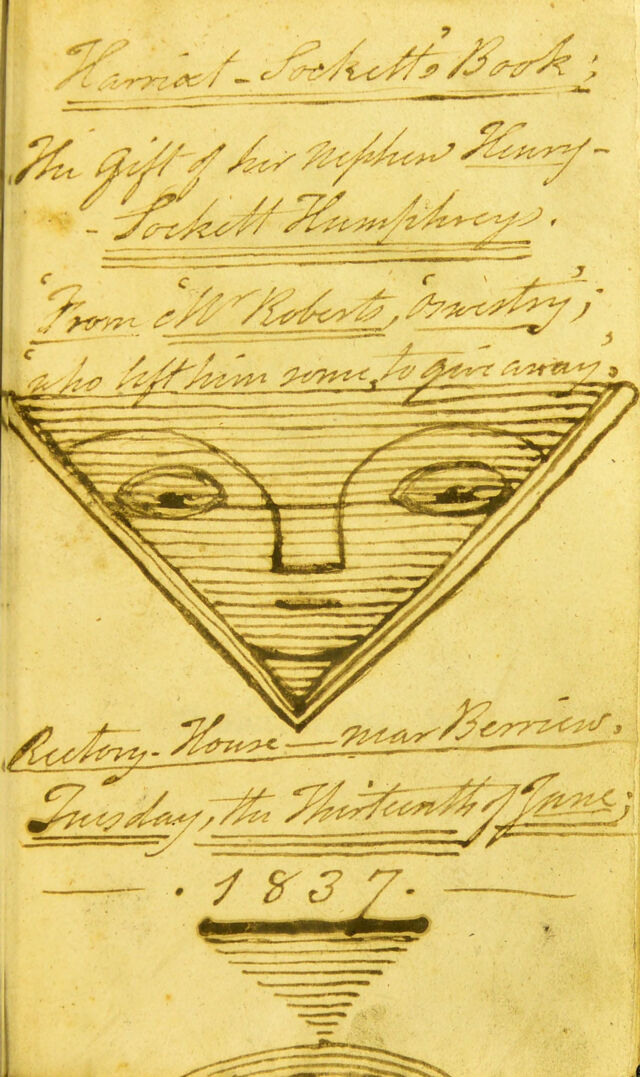 Harriet - Sockett's Book;
The Gift of her Nephew Henry -
- Sockett Humphreys.
"From "Mr Roberts, "Oswestry";
"who left him some, to give away".
Rectory - House — near Berriew.
Tuesday, the Thirteenth of June;
— . 1837. —